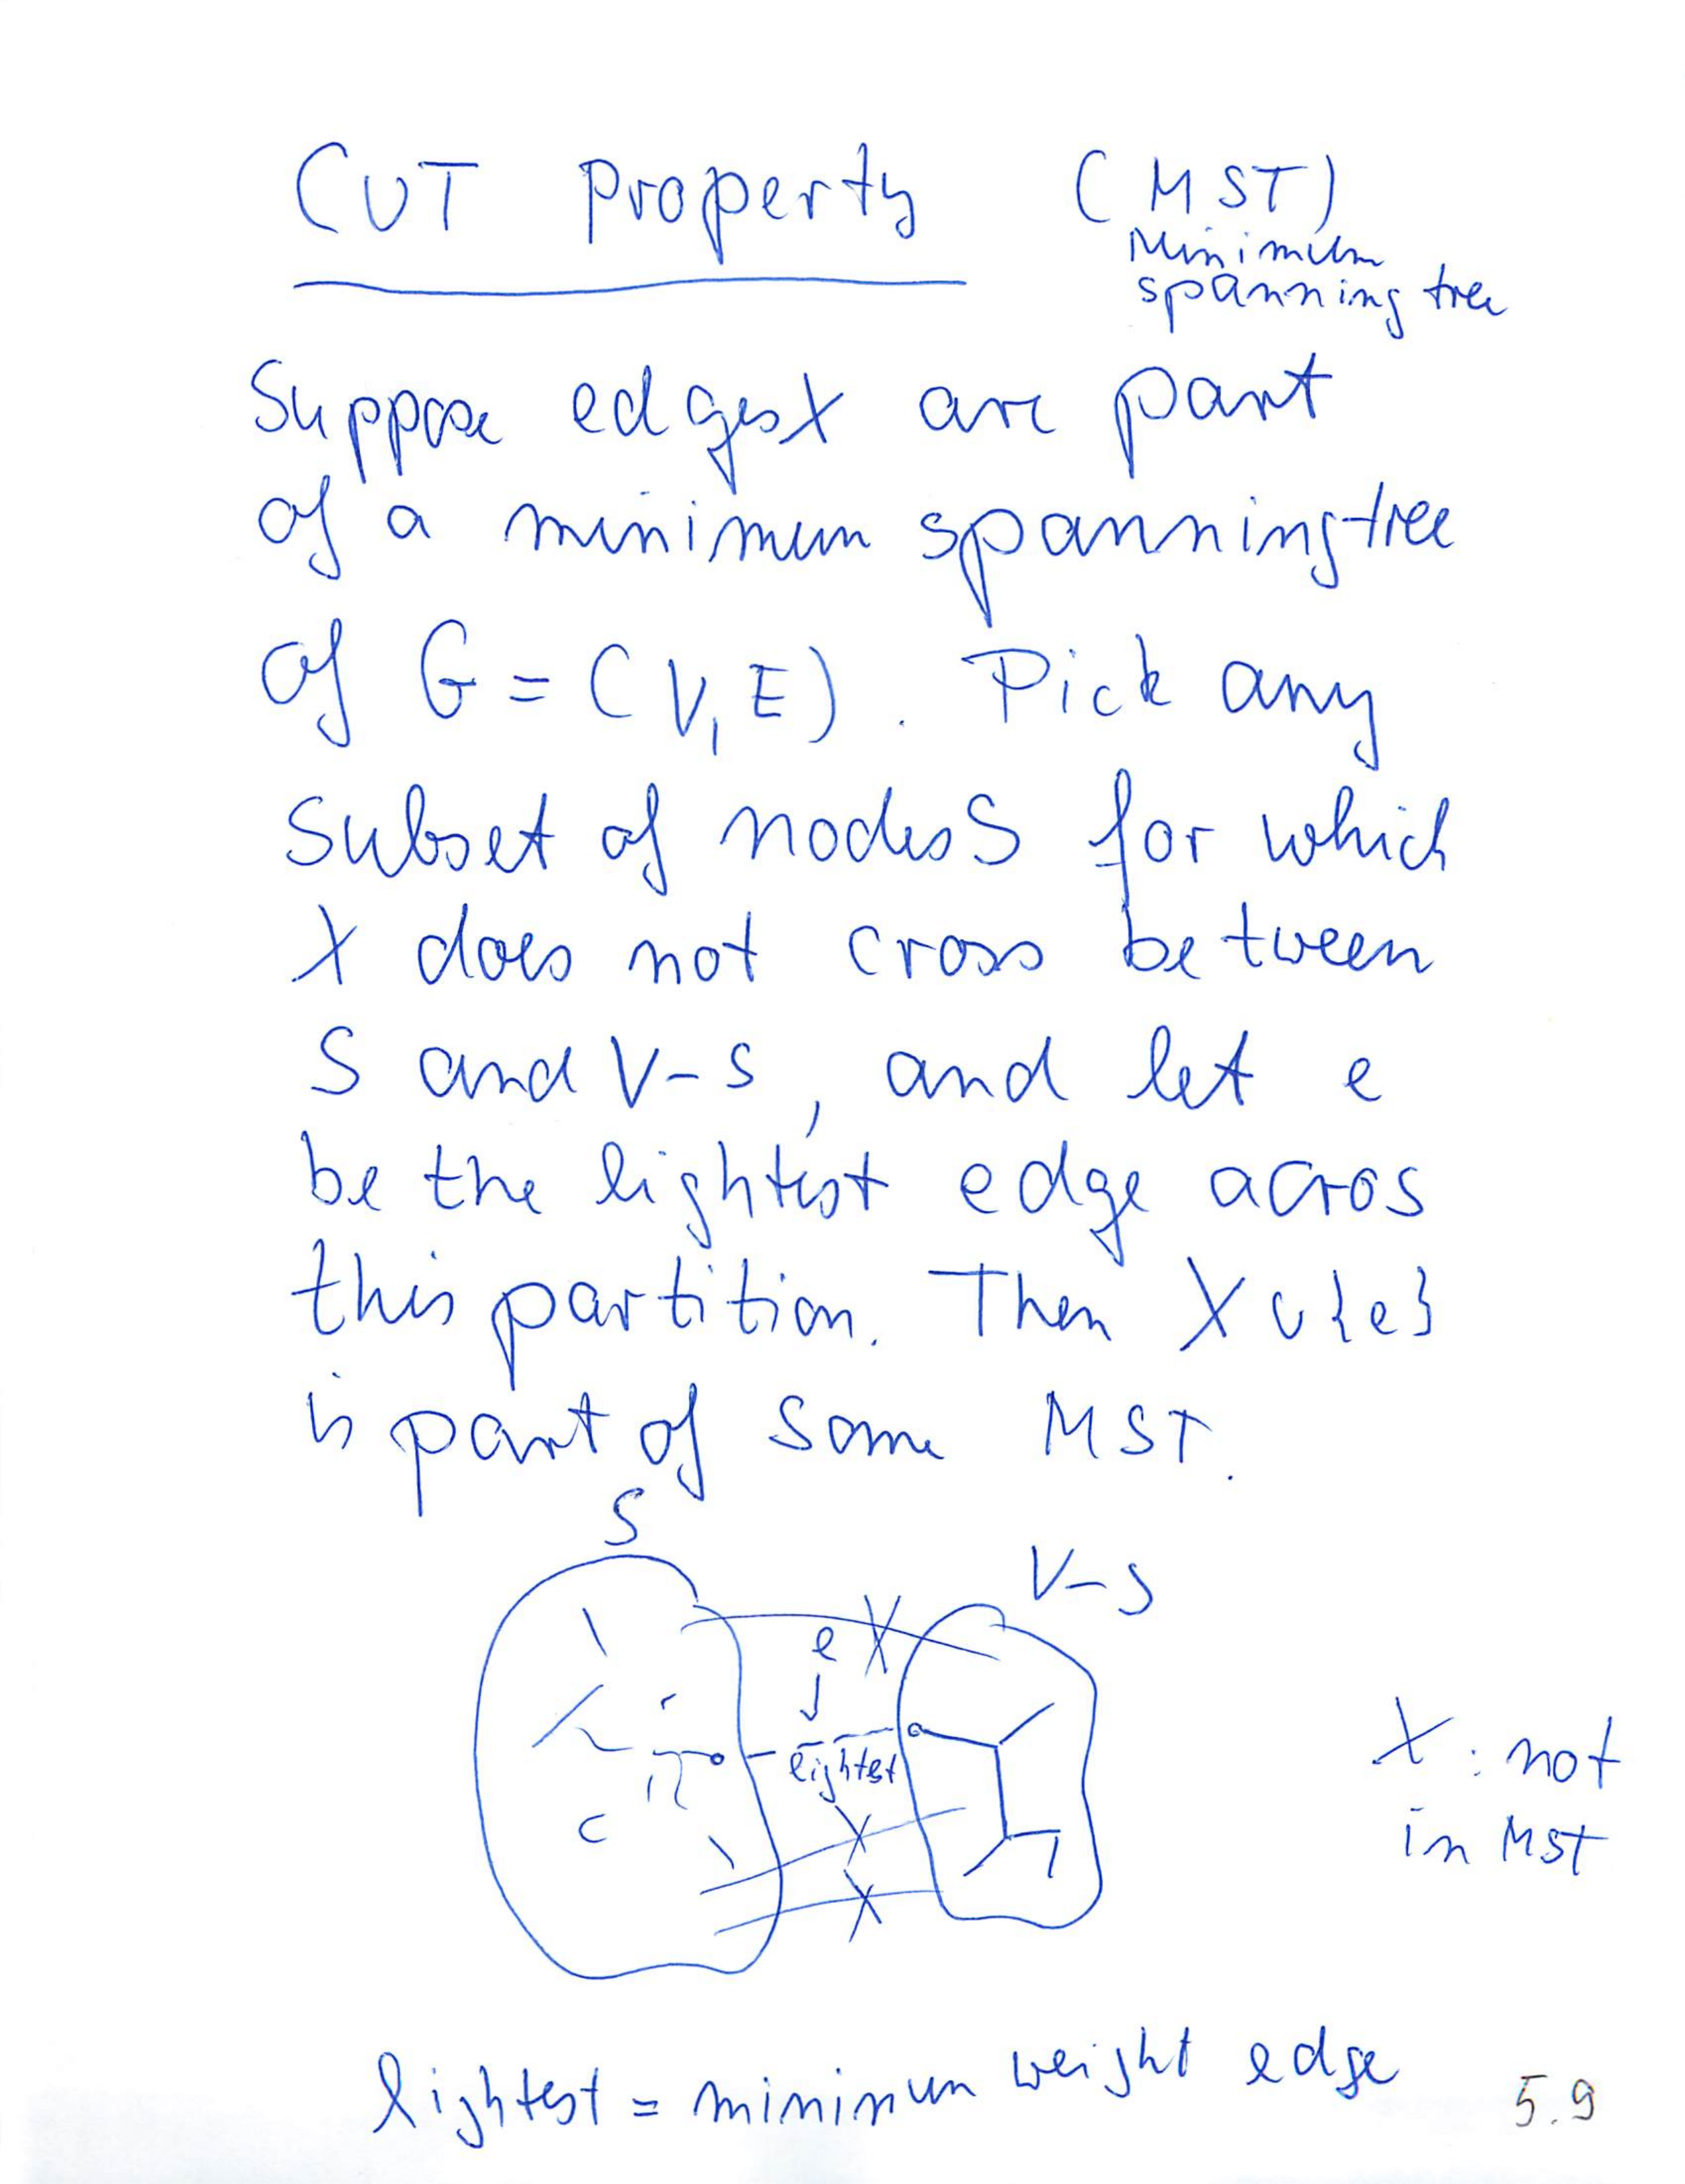 CUT Property (MST)
Minimum
spanning tree
Suppose edges X are part
of a minimum spanning tree
of G = (V, E). Pick any
subset of nodes S for which
X does not cross between
S and V-S, and let e
be the lightest edge acros
this partition. Then X ∪ {e}
is part of some MST.
S
V-S
e
lightest
X : not
in MST
lightest = minimum weight edge
5.9